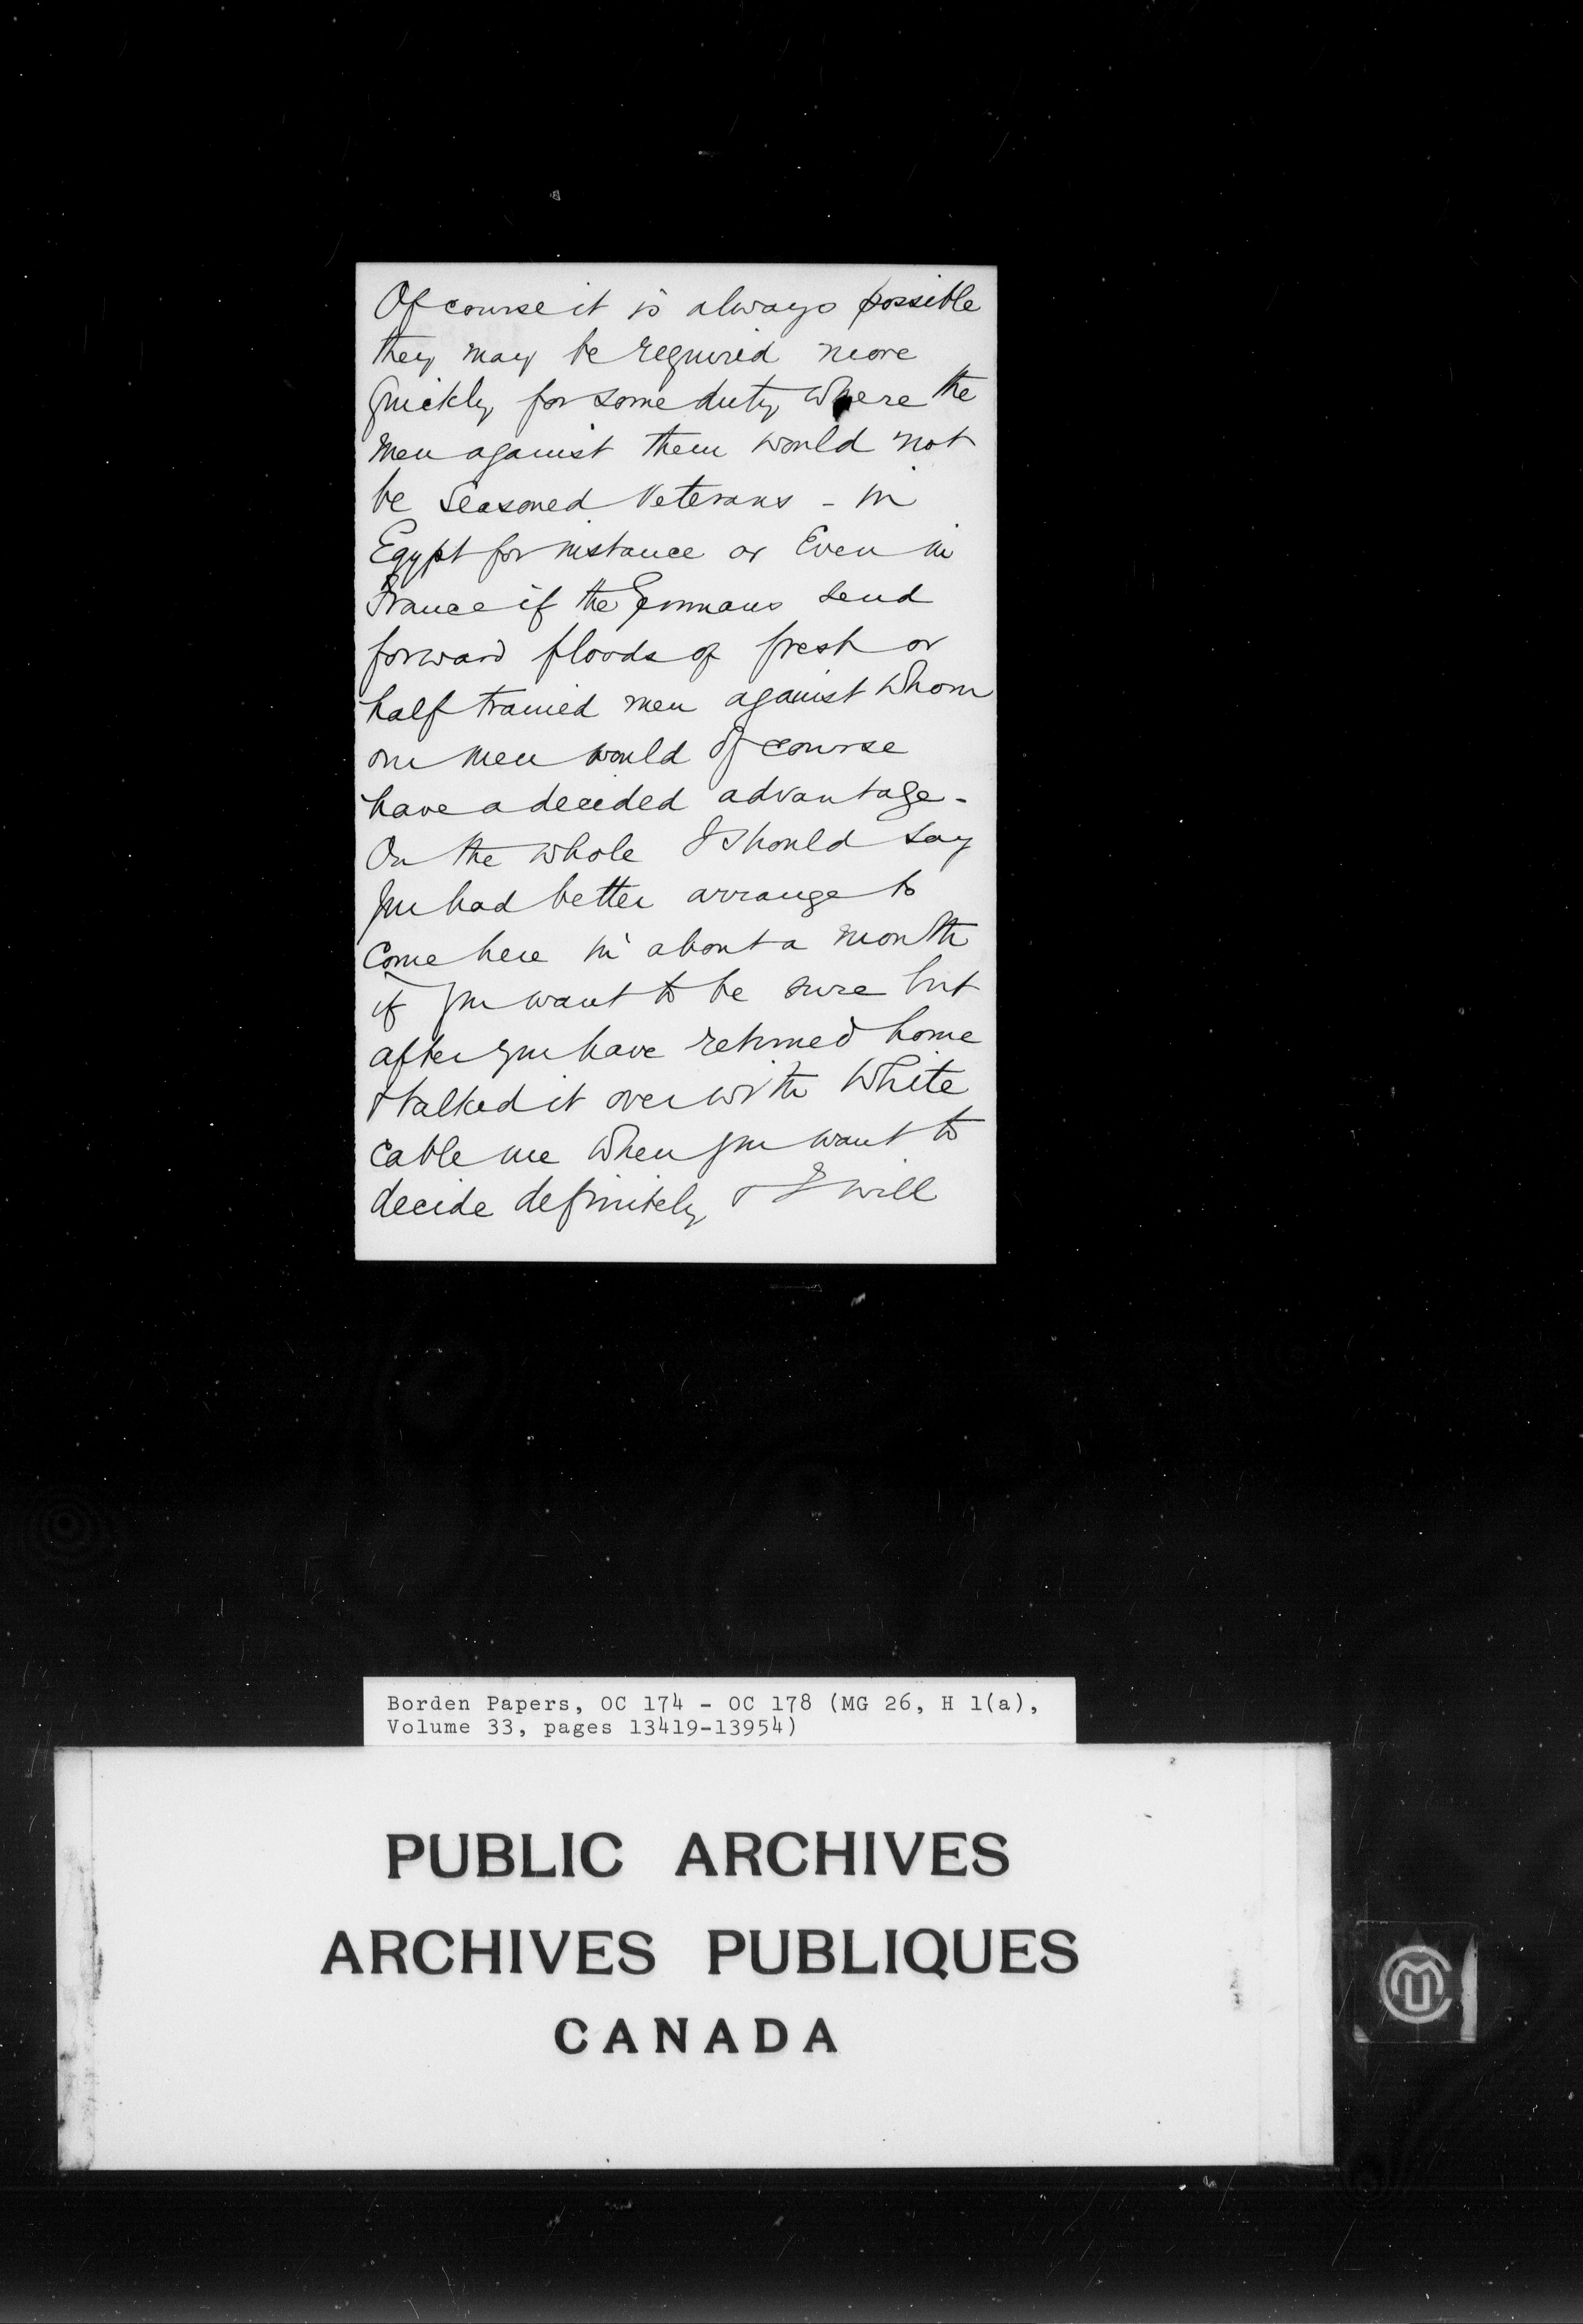 Of course it is always possible
they may be required more
quickly for some duty where the
men against them would not
be seasoned Veterans - in
Egypt for instance or Even in
France if the Germans send
forward floods of fresh or
half trained men against whom
our men would of course
have a decided advantage -
On the whole I should say
you had better arrange to
come here in about a month
if you want to be sure but
after you have returned home
& talked it over with White
cable me when you want to
decide definitely & I will
Borden Papers, OC 174 - OC 178 (MG 26, H 1(a),
Volume 33, pages 13419-13954)
PUBLIC ARCHIVES
ARCHIVES PUBLIQUES
CANADA